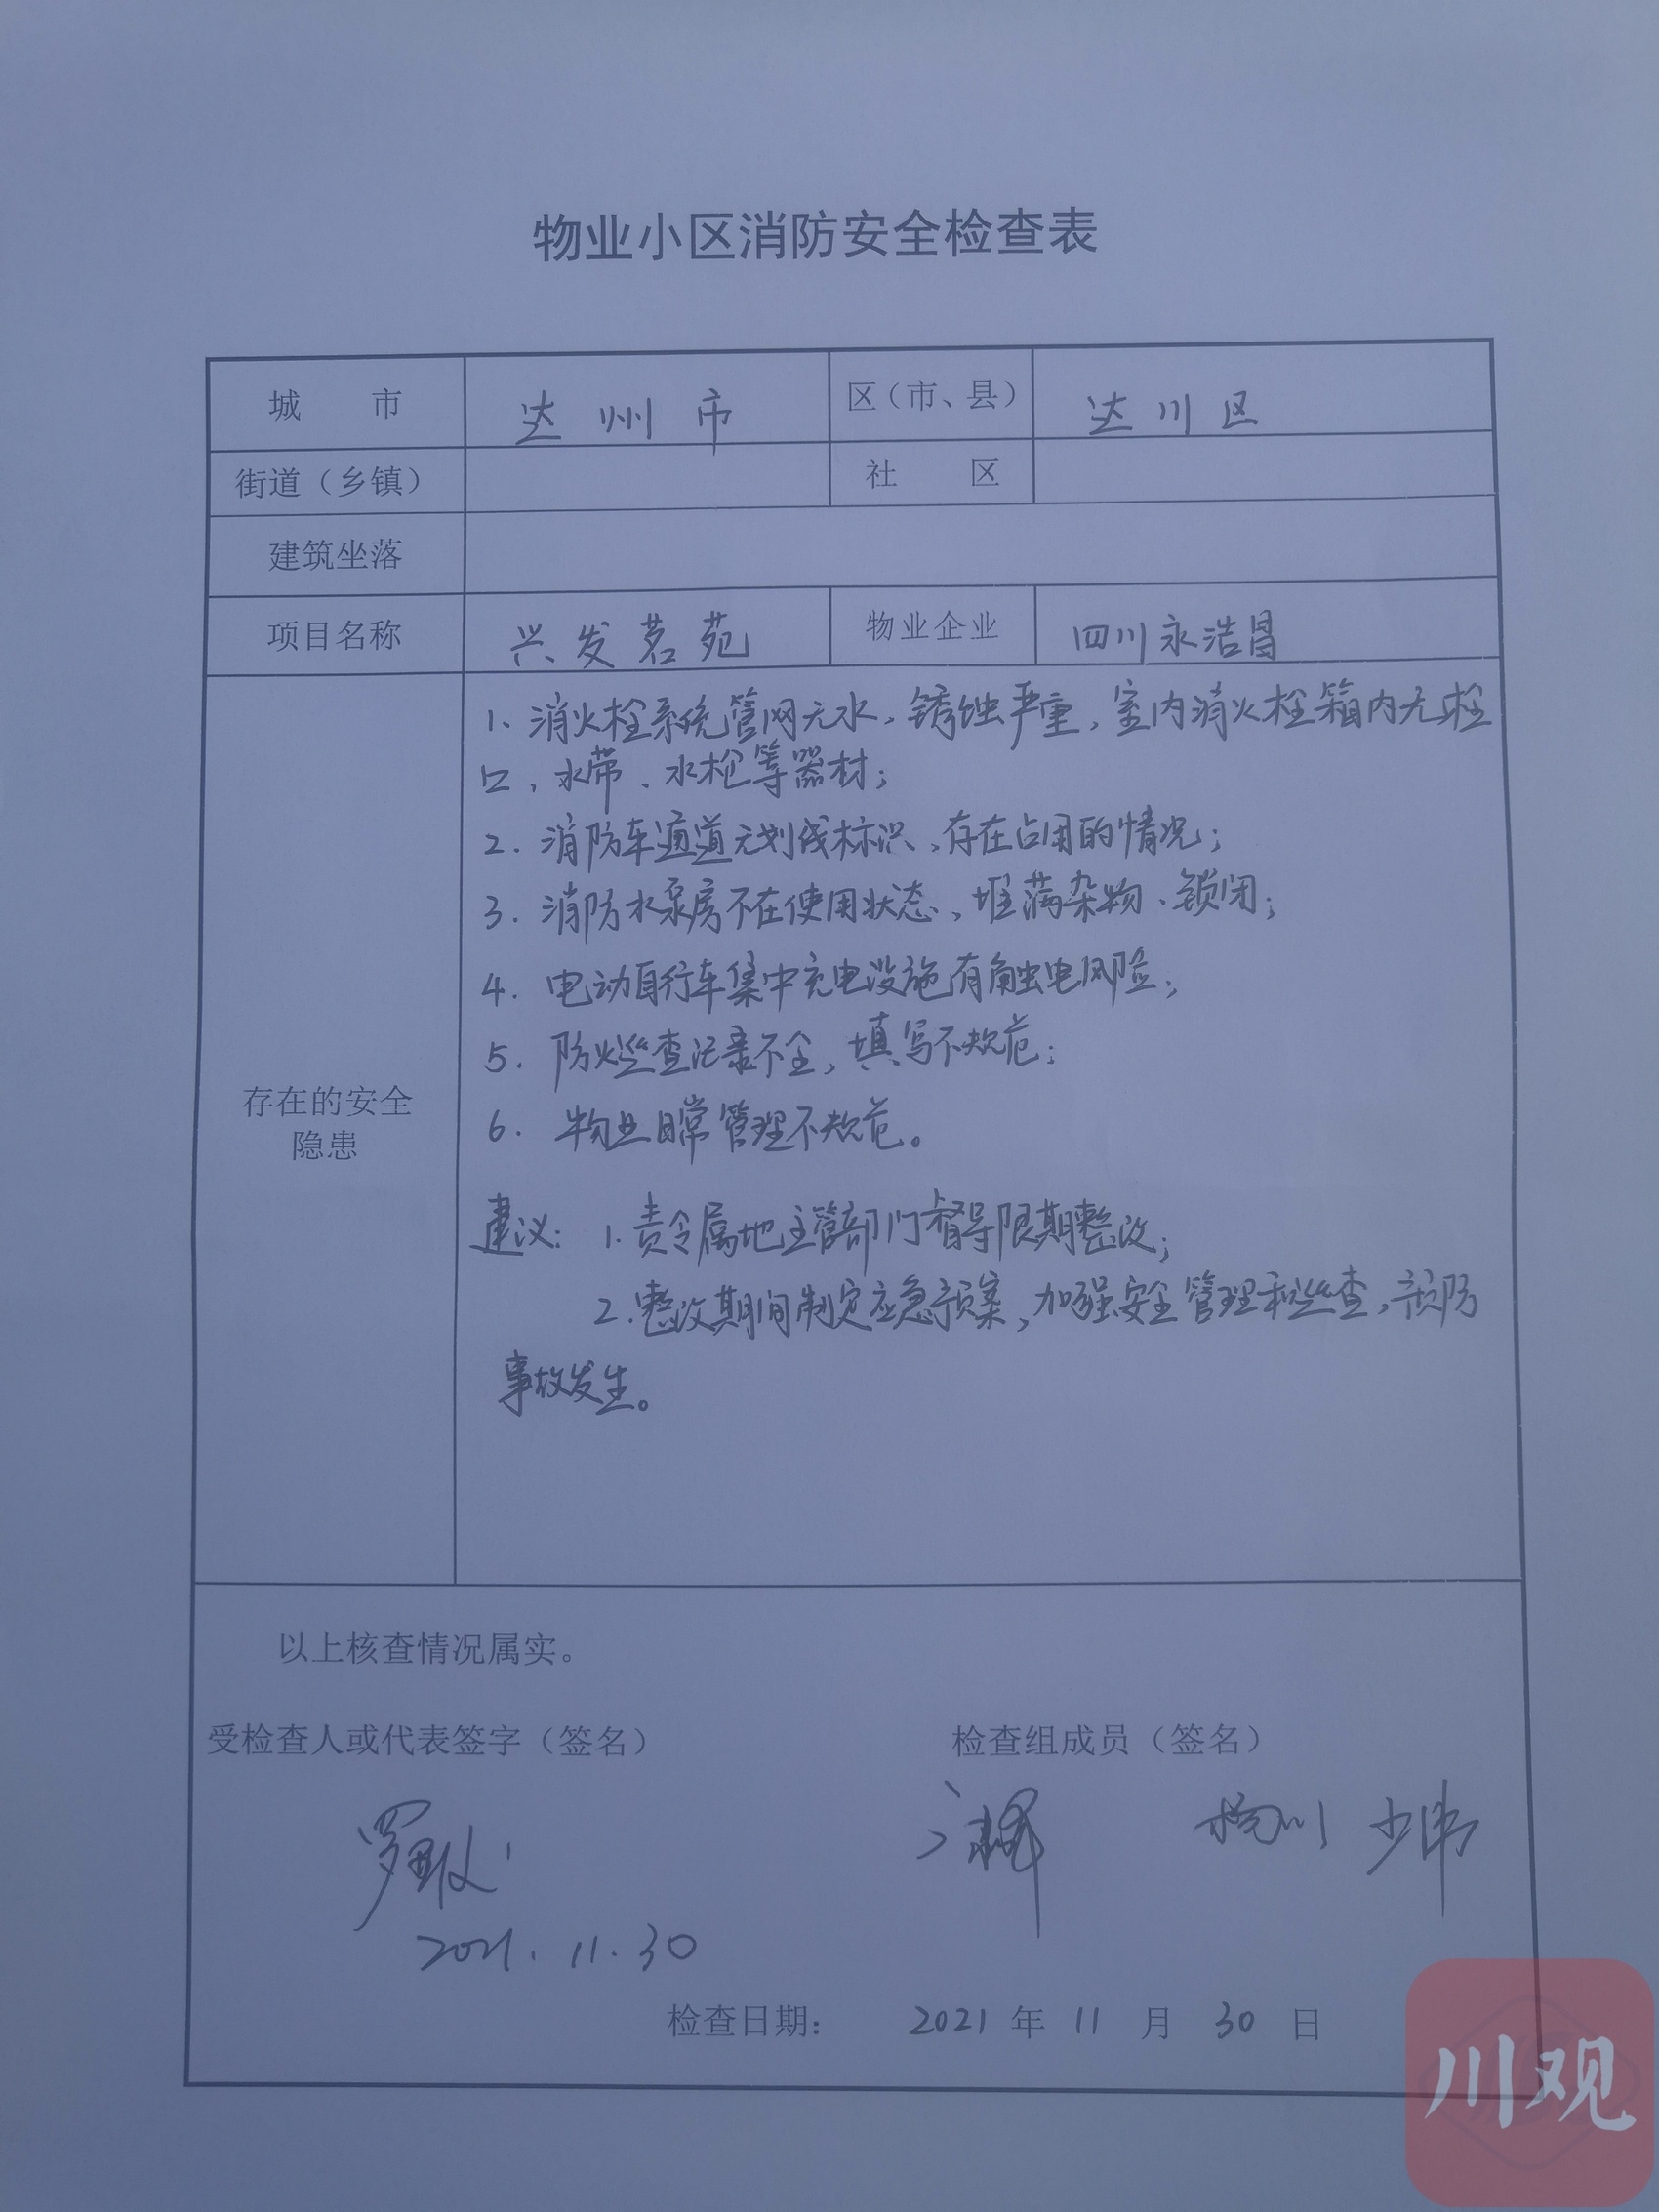 物业小区消防安全检查表
城 市 达州市 区（市、县） 达川区
街道（乡镇） 社 区
建筑坐落
项目名称 兴发茗苑 物业企业 四川永浩昌
存在的安全
隐患
1、消火栓系统管网无水，锈蚀严重，室内消火栓箱内无栓
口、水带、水枪等器材；
2. 消防车通道无划线标识，存在占用的情况；
3. 消防水泵房不在使用状态，堆满杂物、锁闭；
4. 电动自行车集中充电设施有触电风险；
5. 防火巡查记录不全，填写不规范；
6. 物业日常管理不规范。
建议：1.责令属地主管部门督导限期整改；
2.整改期间制定应急预案，加强安全管理和巡查，预防
事故发生。
以上核查情况属实。
受检查人或代表签字（签名） 检查组成员（签名）
2021.11.30
检查日期： 2021 年 11 月 30 日
川观